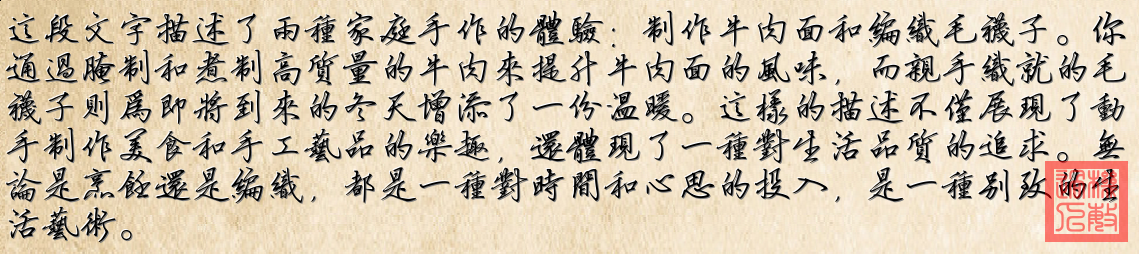 這段文字描述了兩種家庭手作的體驗：制作牛肉面和編織毛襪子。你
通過腌制和煮制高質量的牛肉來提升牛肉面的風味，而親手織就的毛
襪子則爲即將到來的冬天增添了一份溫暖。這樣的描述不僅展現了動
手制作美食和手工藝品的樂趣，還體現了一種對生活品質的追求。無
論是烹飪還是編織，都是一種對時間和心思的投入，是一種別致的生
活藝術。